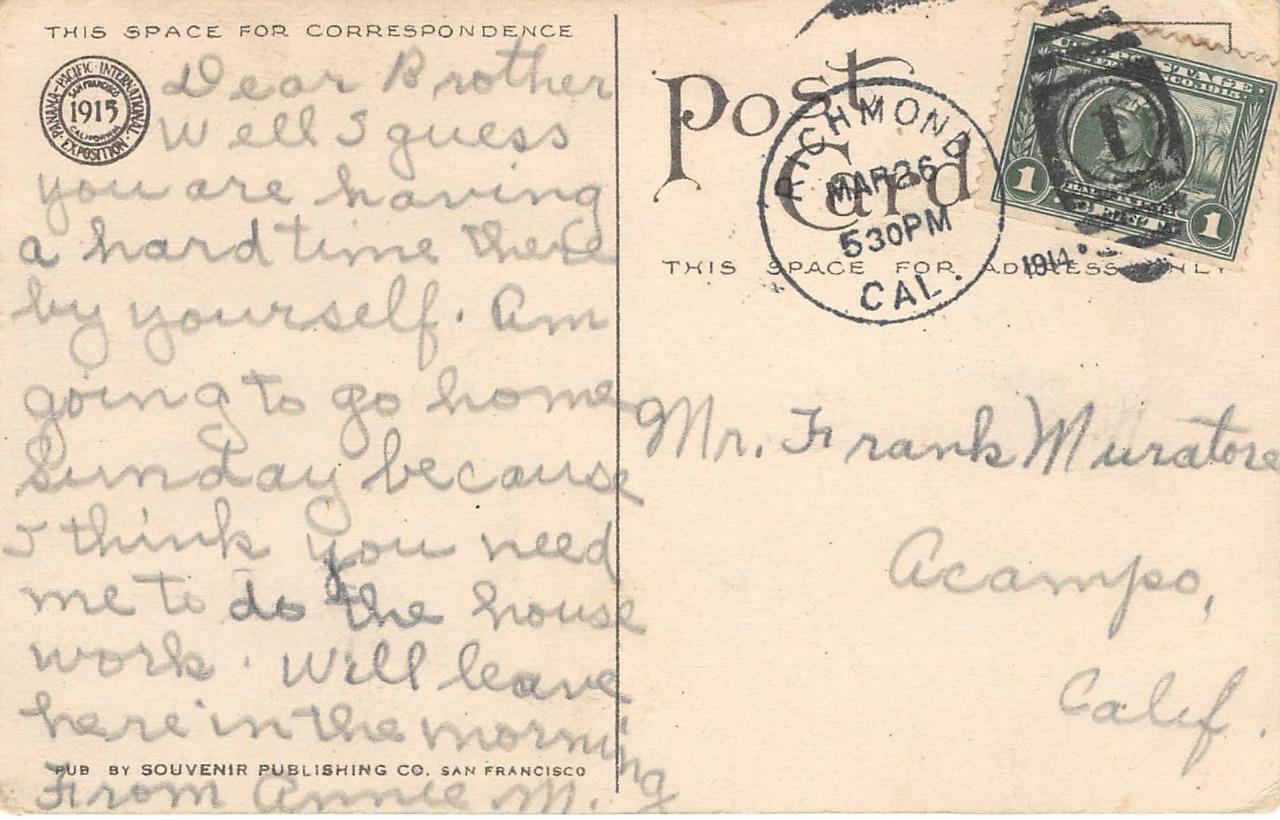 THIS SPACE FOR CORRESPONDENCE
PANAMA-PACIFIC INTERNATIONAL EXPOSITION
SAN FRANCISCO
1915
CALIFORNIA
Dear Brother
Well I guess
you are having
a hard time there
by yourself. Am
going to go home
Sunday because
I think you need
me to do the house
work. Will leave
here in the morning
PUB BY SOUVENIR PUBLISHING CO. SAN FRANCISCO
From Annie M.
Post
Card
RICHMOND
MAR 26
530PM
1914
CAL.
THIS SPACE FOR ADDRESS ONLY
1
1
1
Mr. Frank Muratore
Acampo,
Calif.